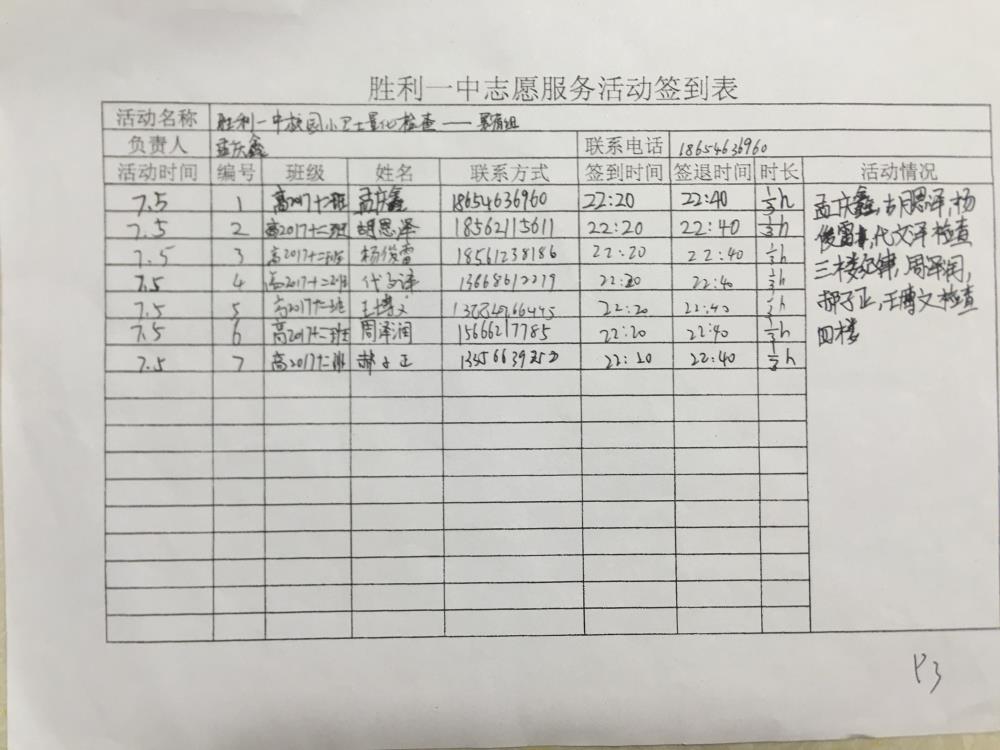 胜利一中志愿服务活动签到表
活动名称 胜利一中校园小卫士量化检查——男宿组
负责人 孟庆鑫 联系电话 18654636960
活动时间 编号 班级 姓名 联系方式 签到时间 签退时间 时长 活动情况
7.5 1 高2017十二班 孟庆鑫 18654636960 22:20 22:40 1/3h 孟庆鑫,胡思泽,杨
7.5 2 高2017十二班 胡思泽 18562115611 22:20 22:40 1/3h 俊雷,代文泽检查
7.5 3 高2017十二班 杨俊雷 18561238186 22:20 22:40 1/3h 三楼纪律,周泽润,
7.5 4 高2017十二班 代文泽 22:20 22:40 1/3h 郝子正,王博文检查
7.5 5 高2017十二班 王博文 22:20 22:40 1/3h 四楼
7.5 6 高2017十二班 周泽润 15666217785 22:20 22:40 1/3h
7.5 7 高2017十二班 郝子正 22:20 22:40 1/3h
P3